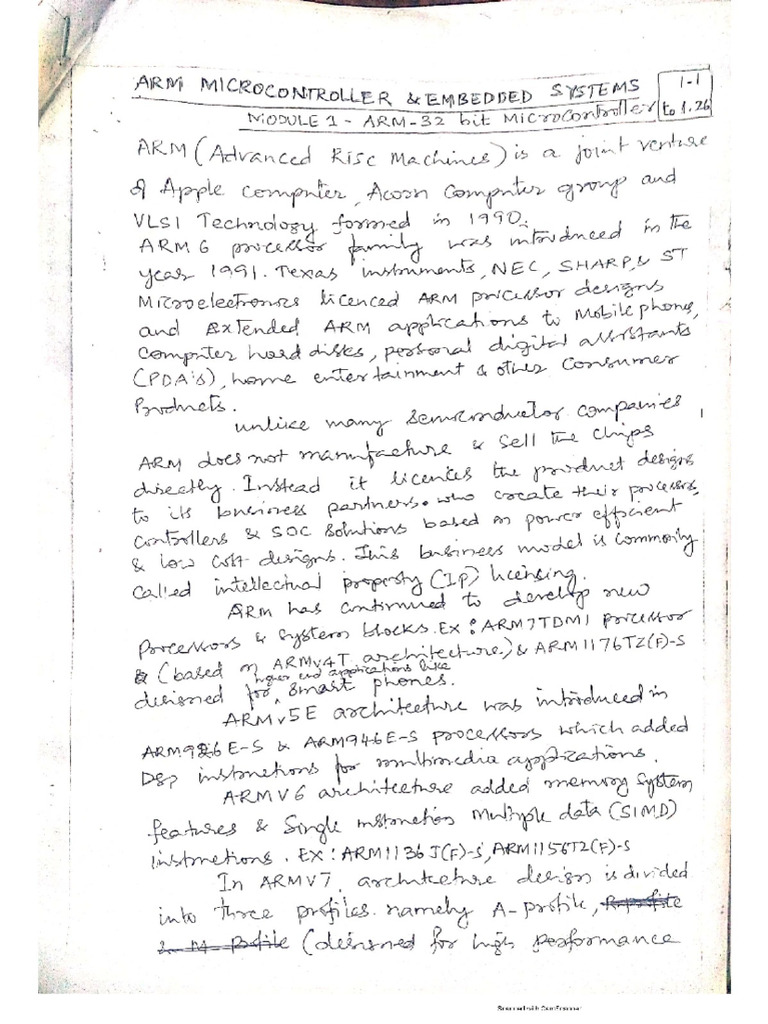 ARM MICROCONTROLLER & EMBEDDED SYSTEMS
1-1 to 1.26
MODULE 1 - ARM-32 bit Microcontroller
ARM (Advanced Risc Machines) is a joint venture
of Apple computer, Acorn Computer group and
VLSI Technology formed in 1990.
ARM6 processor family was introduced in the
year 1991. Texas instruments, NEC, SHARP, & ST
Microelectronics licenced ARM processor designs
and Extended ARM applications to Mobile phones,
Computer hard disks, personal digital assistants
(PDA's), home entertainment & other Consumer
Products.
unlike many Semiconductor companies
ARM does not manufacture & Sell the chips
directly. Instead it licences the product designs
to its business partners. who create their processors,
controllers & SOC solutions based on power efficient
& low cost designs. This business model is commonly
called intellectual property (IP) licensing.
ARM has continued to develop new
Processors & System blocks. Ex: ARM7TDMI processor
(based on ARMv4T architecture) & ARM1176TZ(F)-S
higher end applications like
designed for smart phones.
ARMv5E architecture was introduced in
ARM926E-S & ARM946E-S processors which added
DSP instructions for multimedia applications.
ARMV6 architecture added memory system
features & Single instruction Multiple data (SIMD)
instructions. EX: ARM1136J(F)-S, ARM1156T2(F)-S
In ARMV7, architecture design is divided
into three profiles. namely A-profile, R-profile
& M-profile (designed for high performance
Scanned with CamScanner